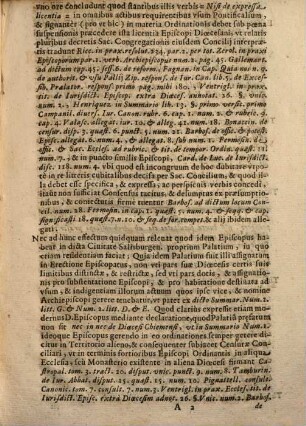 uno ore concludunt quod stantibus illis verbis: Nisi de expressa
licentia &c. in omnibus actibus requirentibus usum Pontificalium,
& signanter (pro ut hic) in materia Ordinationis debet sub pœna
suspensionis præcedere ista licentia Episcopi Diœcesani, ut relatis
pluribus decretis Sac. Congregationis ejusdem Concilij interpretis
tradunt Ricc. in prax. resolut.
Episcoporum par. 1. verb. Archiepiscopus num. 2. pag. 45. Gallemart.
ad dictum cap. 45. sess. 6. de reform. Fagnan. in Cap.
de authorit. & usu Pallij Zip. respons. de Jur. Can. lib. 5. de Excess.
Prælator. respons. primo pag. mihi 180. Ventrigl. in prax.
tit. de Jurisdict. Episcop. extra Diœces. annotat. 26. §. Unic.
num. 1. Henriquez in Summario lib. 13. §. primo versic. primo
Campanil. diuers. Iur. Canon. rubr. 6. cap. 1. num. 2. & rubric. 6.
cap. 4. Valese. allegat. iur. tom. 2. & alleg. 12. num. 18. Bonacin. de
censur. disp. 3. quæst. 6. punct. 5. num. 21. Barbos. de offic. & potest.
Episc. allegat. 6. num. 4. & allegat. 8. sub num. 1. Fermosin. de
offic. & Sac. Eccles. ad rubric. & tit. de tempor. Ordin. quæst. 9.
num. 75. & in puncto similis Episcopi. Card. de Luc. de Iurisdict.
disc. 118. num. 4. ubi quod sit incongruum de hoc dubitare opposito
in re litteris cubitalibus decisa per Sac. Concilium, & quod illa
debet esse specifica, & expressa, ac perspicuis verbis concedi,
itaut non sufficiat Consensus tacitus, & desumptus ex præsumptionibus,
& conjecturis notant Barbos. ad dictum locum Concil.
num. 28. Fermosin. in cap. 1. quæst. 5. num. 4. & seqq. & cap.
significasti 18. quæst. 1. n. 10. & seq. de for. compet. & alij ibidem
allegati.
Nec ad hunc effectum quidquam relevat quod idem Episcopus habeat
in dicta Civitate Salisburgen. proprium Palatium, in quo
etiam residentiam faciat; Quia idem Palatium fuit illi assignatum
in Erectione Episcopatus, non uti pars suæ Diœcesis certis suis
limitibus distinctæ, & restrictæ, sed uti pars dotis, & assignationis
pro substentatione Episcopi, & pro habitatione destinata ad
usum, & indigentiam illorum actuum quos ipse vice, & nomine
Archiepiscopi gerere tenebatur, ut patet ex dicto Summar. Num. 1.
litt. G. & Num. 1. litt. D. & E. Quod clariùs expressit etiam modernus
D. Episcopus mediante declaratione, quod Palatij præfatum
non sit nec in nec de Diœcesi Chiemensi, ut in Summario Num.
ideoque Episcopus gerendo in eo ordinationes semper gerere dicitur
in Territorio alieno, & consequenter subjacet Censuræ Conciliari,
ut in terminis fortioribus Episcopi Ordinantis in aliqua
Ecclesia, seu Monasterio existente in aliena Diœcesi firmant Castropal.
tom. 3. tract. 20. disput. unic. punct. 9. num. 8. Tamburin.
de Iur. Abbat. disput. 15. quæst. 3. num. 10. Pignatelli. consult.
Canonic. tom. 7. consult. 7. num. 3. Ventrigl. in prax. Eccles. tit. de
Iurisdict. Episc. extra Diœcesim adnot. 26. §. Unic. num. 2. Barbos.
A 2 de